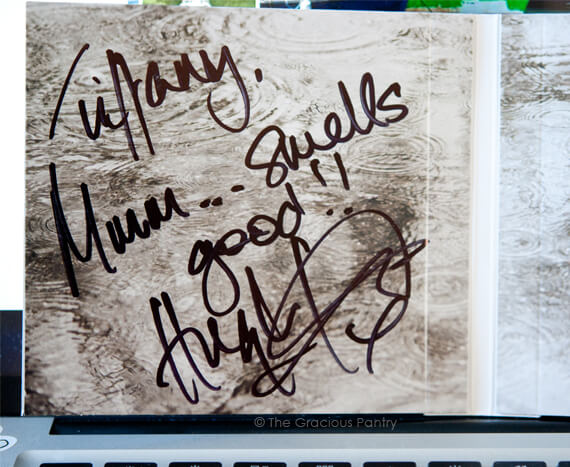 Tiffany,
Mmm... smells
good!!
Hugh
© The Gracious Pantry